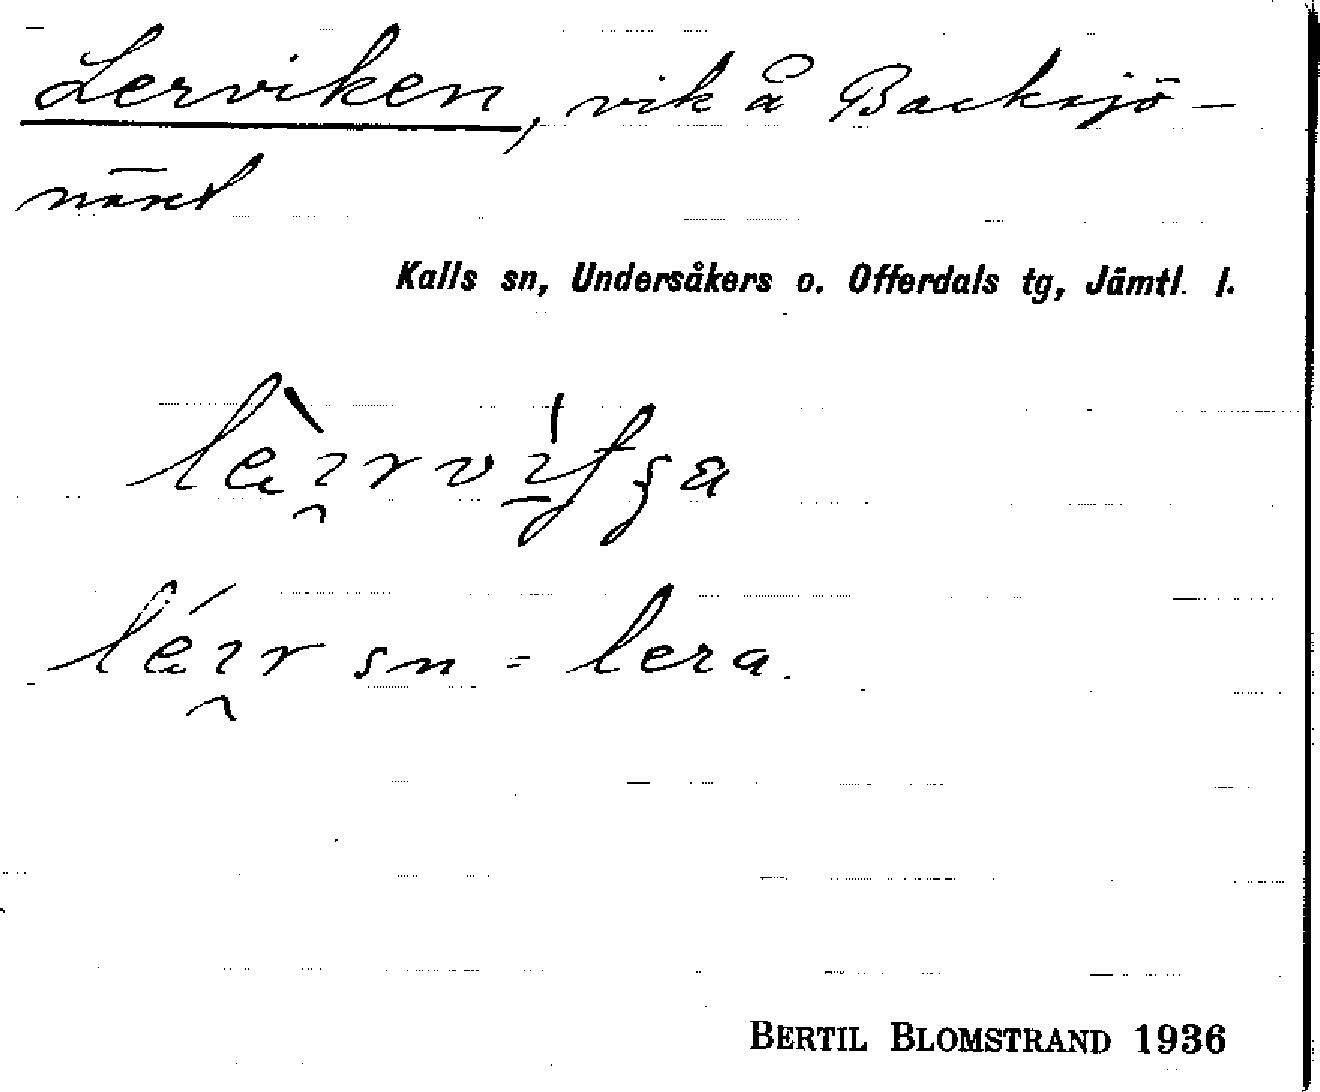 Lerviken, vik å Backsjö-
näset
Kalls sn, Undersåkers o. Offerdals tg, Jämtl. l.
sn = lera.
BERTIL BLOMSTRAND 1936